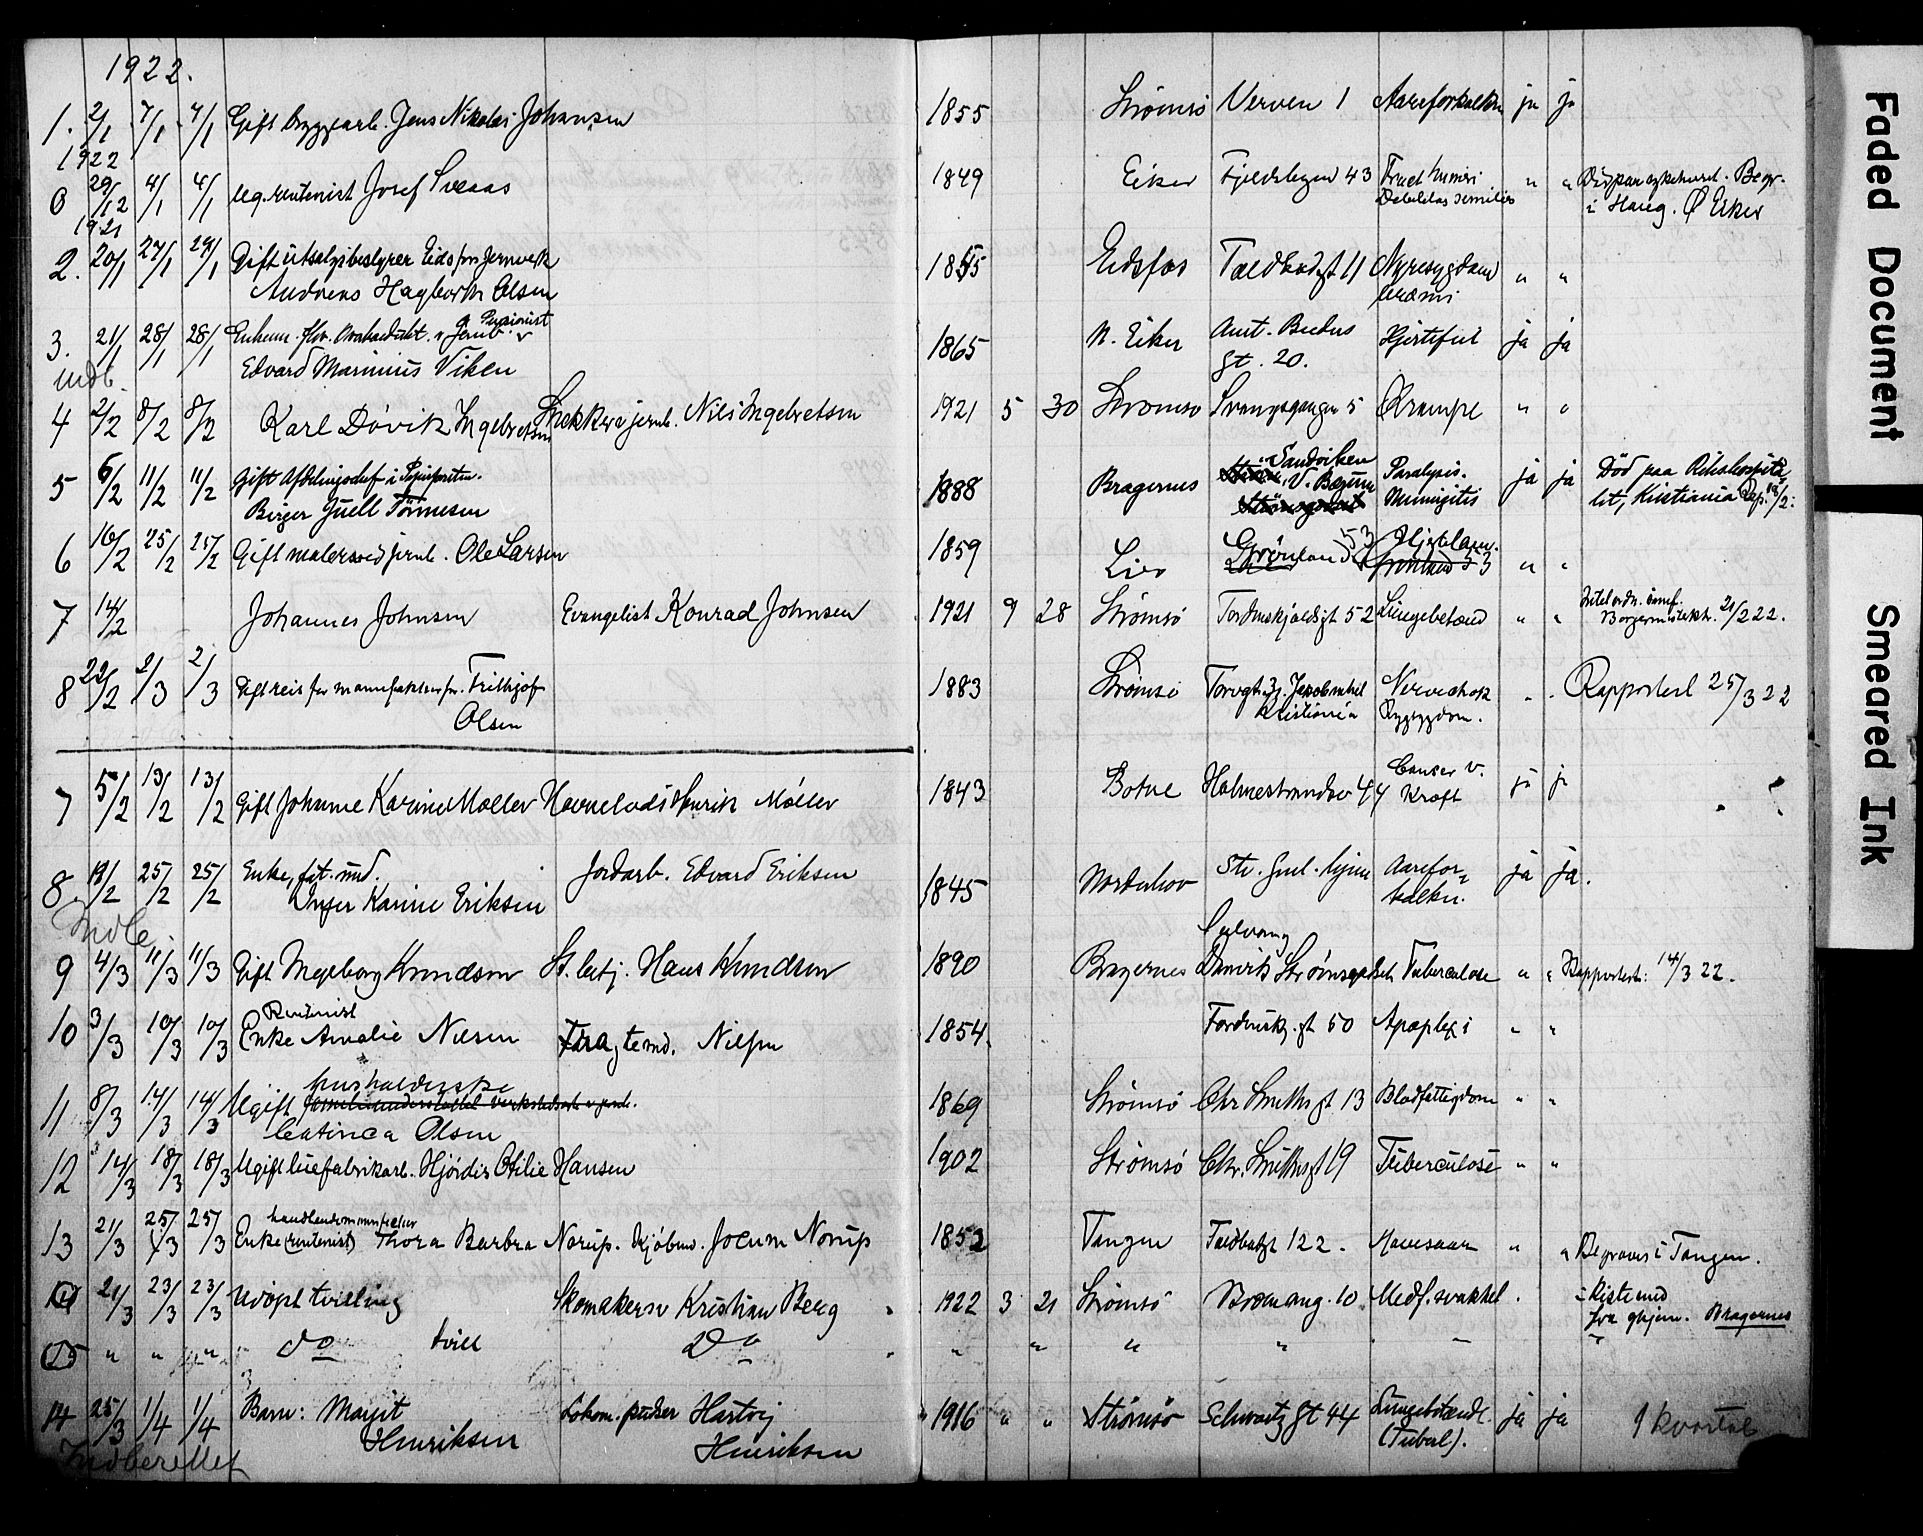 1922.
1. 2/1 7/1 7/1 Gift bryggearb. Jens Nikolai Johansen 1855 Strømsø Verven 1 Aareforkalkn ja ja
1922
0 29/12 4/1 4/1 ug. rentenist Josef Sveaas 1849 Eiker Fjeldslegen 43 Fract humeri " "
1921 Debilitas senilis i Haug. Ø Eiker
2. 20/1 27/1 29/1 Gift utsalgsbestyrer Eidsfos jernverk 1855 Eidsfos Toldbodgt 11 Nyresygdom " "
Andreas Hagbarth Olsen Uræmi
3. 21/1 28/1 28/1 Enkem. Pensionist 1865 N. Eiker Amt. Beckers Hjertefeil ja ja
Indb. Edvard Marinius Viken gt. 20.
4 2/2 8/2 8/2 Karl Dövik Ingebretsen Snekker v jernb. Nils Ingebretsen 1921 5 30 Strømsø Svangsgangen 5 Krampe " "
5 6/2 11/2 11/2 Gift Afdelingschef i 1888 Bragernes Sandviken V. Bærum Paralysis. ja ja Död paa Rikshospita
Birger Juell Tönnesen Meningitis let, Kristiania
6 16/2 25/2 25/2 Gift maler ved jernb. Ole Larsen 1859 Lier Grönland 53 " "
7 14/2 Johannes Johnsen Evangelist Konrad Johnsen 1921 9 28 Strømsø Tordenskjoldsgt 52 Lungebetænd " " 21/2 22.
8 22/2 2/3 2/3 Gift reis for manufakturfor. Frithjof 1883 Strømsö Torvgt Kristiania Nervechok " . Rapportert 25/3 22
Olsen Rygsygdom.
7 5/2 13/2 13/2 Gift Johanne Karine Møller Havnelods Henrik Møller 1843 Botne Holmestrandsv 44 Cancer v. ja ja
Kræft
8 25/2 25/2 Enke, fat. und. Jordarb. Edvard Eriksen 1845 Norderhov Str. Gml. hjem Aarefor= ja ja.
Inger Karine Eriksen kalkn.
Indb.
9 4/3 11/3 11/3 Gift Ingeborg Knudsen St. betj. Hans Knudsen 1890 Bragernes Solvang Danvik Strömsgodset Tuberculose " " Rapportert: 14/3 22.
Rentenist
10 3/3 10/3 10/3 Enke Amalie Nilsen Fragtemd. Nilsen 1854. Tordenskj. gt 50 Apoplexi " "
husholderske
11 8/3 14/3 14/3 Ugift 1869 Strømsö Chr Smithsgt 13 Blodfattigdom " "
Catinca Olsen
12 14/3 18/3 18/3 Ugift luefabrikarb. Hjördis Otilie Hansen 1902 Strømsö Chr. Smithsgt 19 Tuberculose " "
13 21/3 25/3 25/3 Enke (rentenist) Thora Barbra Norup. Kjöbm. Jocum Norup 1852 Tangen Toldbodgt 122. Mavesaar " " Begraves i Tangen.
14 21/3 23/3 23/3 Udöpt tvilling Skomakersv Kristian Berg 1922 3 21 Strømsö Bromsng. 10 Medf. svakhet . i Kiste med
15 " " " do tvill Do " " " " " fra ghjem. Bragernes
14 25/3 1/4 1/4 Barn: Margit Lokom. pudser Hartvig 1916 " " Strømsö Schwartz gt 44 Lungebetænd. ja ja 1 kvartal
Henriksen Henriksen (Tuberl).
Indberettet
Faded Document
Smeared Ink